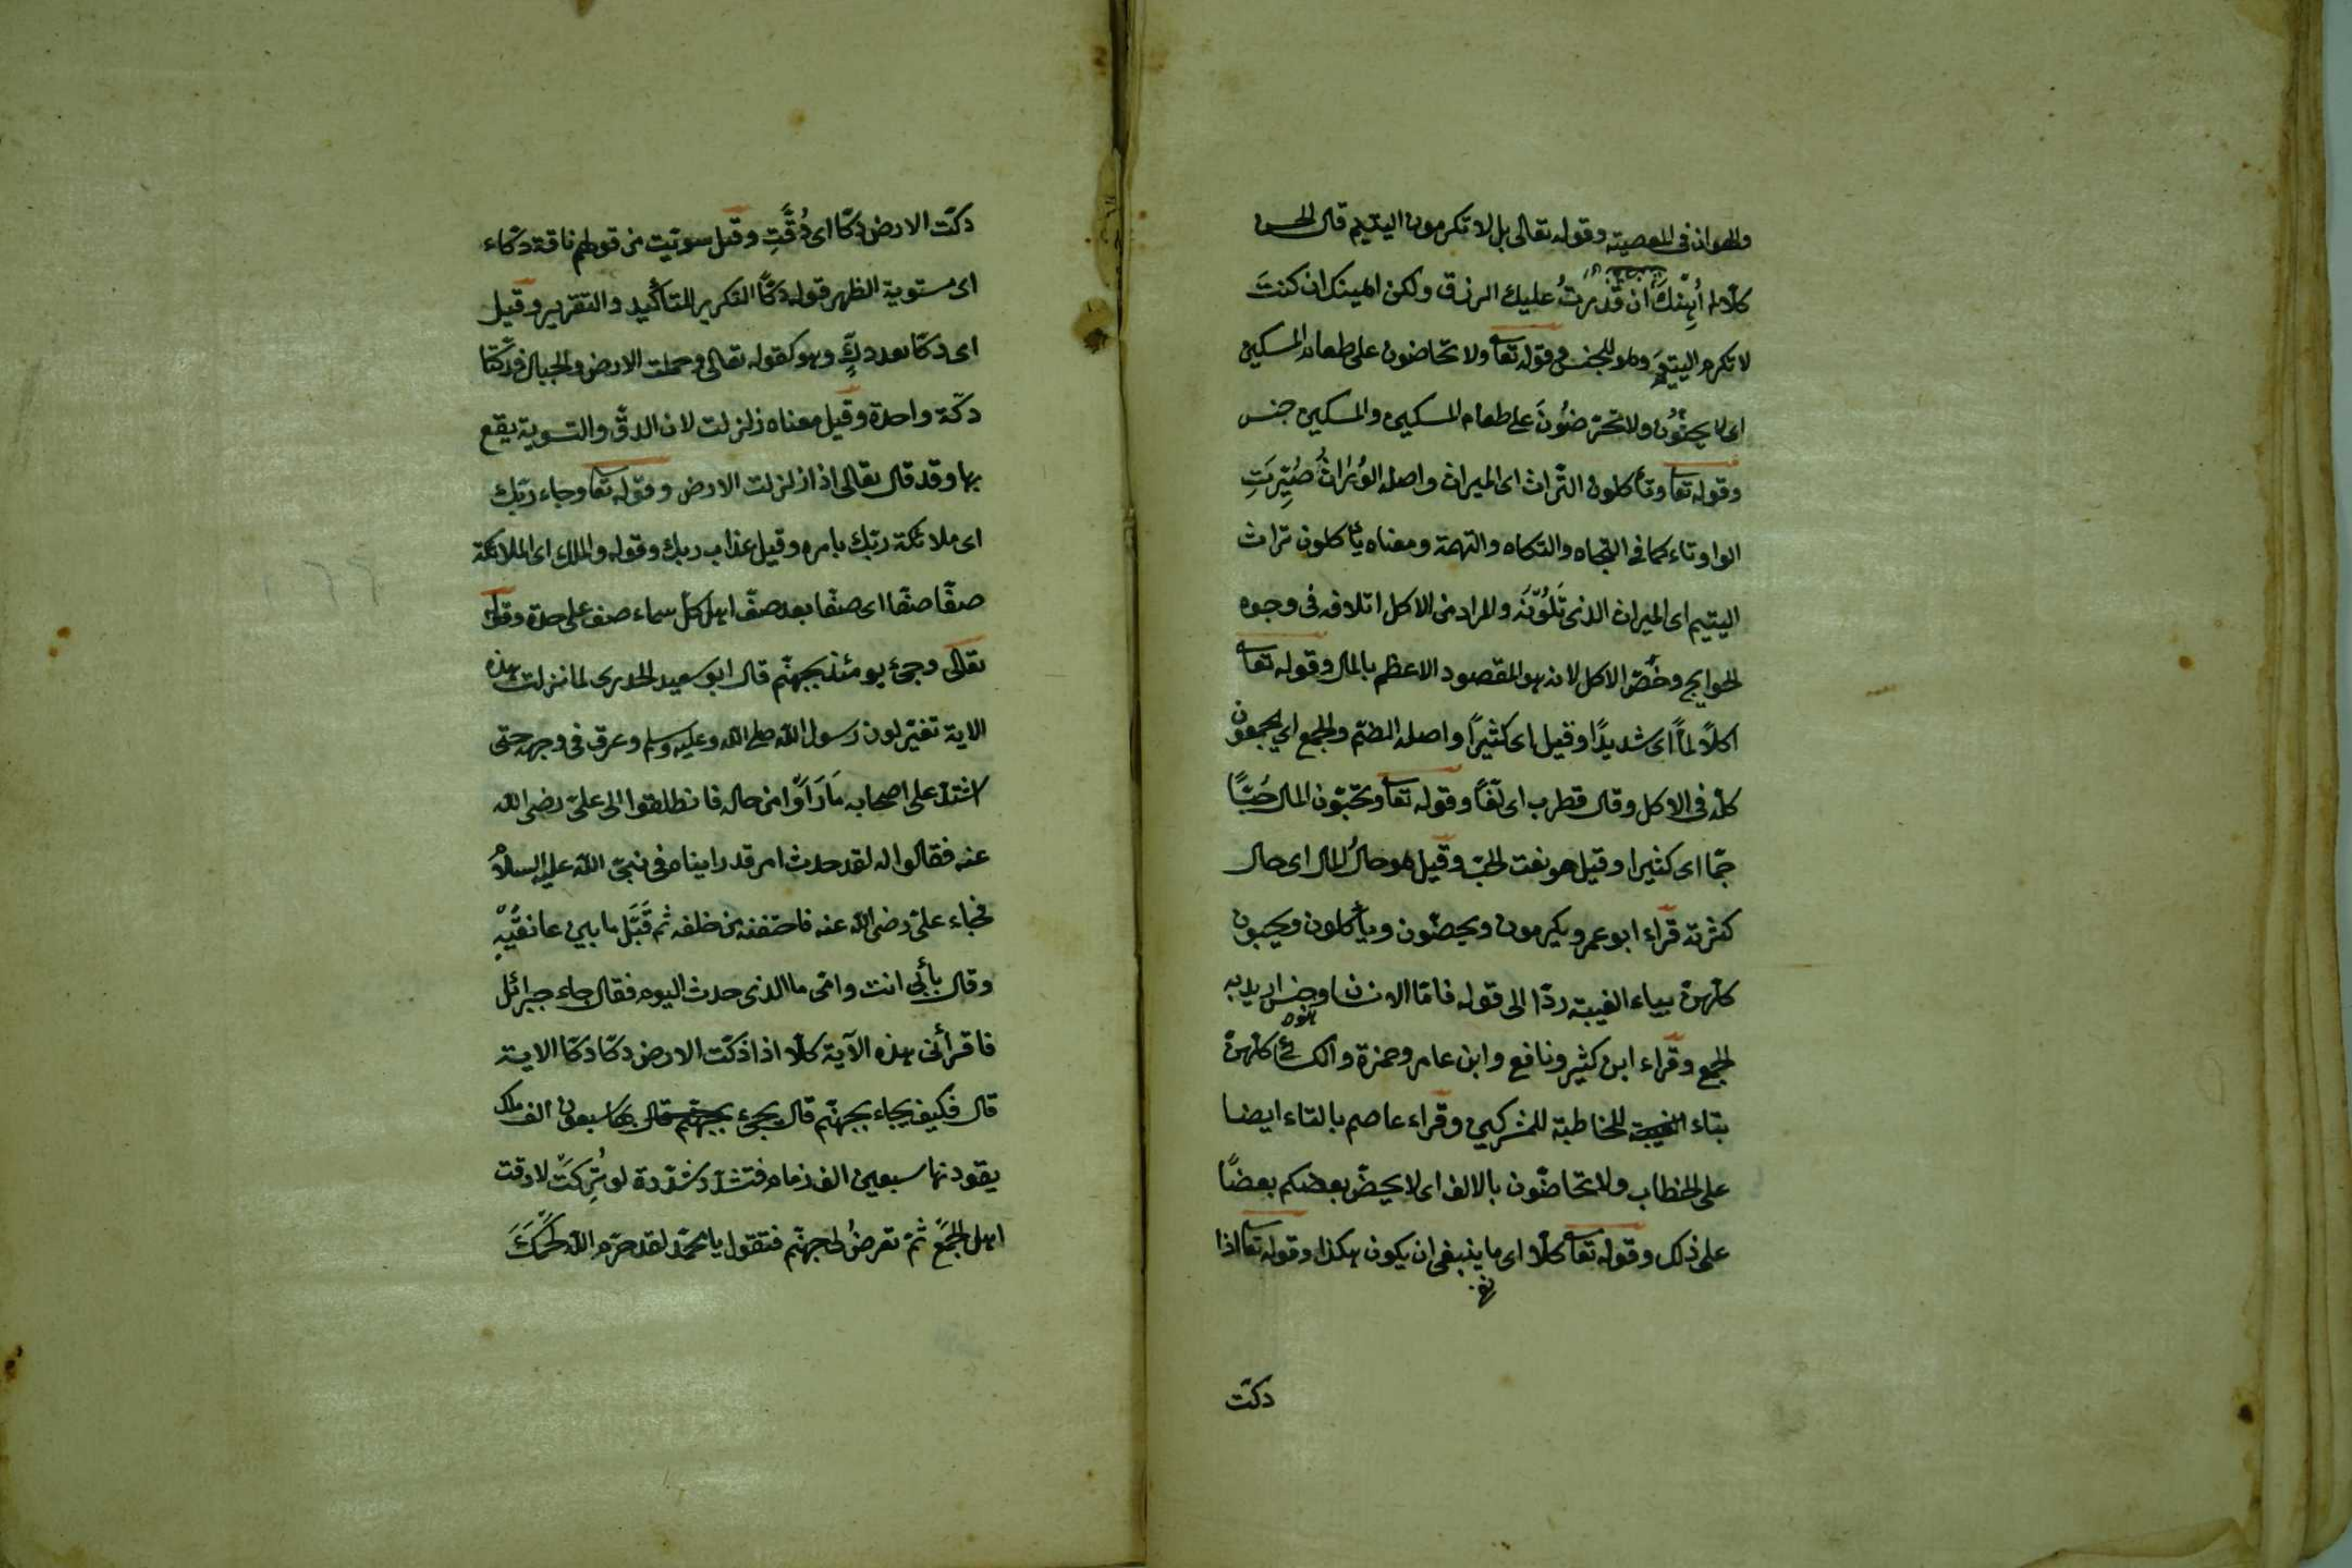 والهوان فى المعصية وقوله تعالى بل لا تكرمون اليتيم قال الحسن
كلا ما أُهِنْكَ ان قَدَرْتُ عليك الرزق ولكن اهينك ان كنتَ
لا تكرم اليتيمَ وهو للجنس وقوله تعا ولا تحاضون على طعام المسكين
اى لا يحثّون ولا تحرّضُونَ على طعام المسكين والمسكين جنس
وقوله تعا وتأكلون التّراث اى الميراث واصله الوُرَاثُ صُيِّرَتِ
الواو تاء كما فى التجاه والتكاه والتهمة ومعناه يأكلون تراث
اليتيم اى الميراث الذى والمراد من الاكل اتلافه فى وجوه
الحوايج وخُصّ الاكل لانه هو المقصود الاعظم بالمال وقوله تعا
اكلاً لماً اى شديدًا وقيل اى كثيرًا واصله الضمّ والجمع اى يجمعون
كلّه فى الاكل وقال قطرب اى لَفّاً وقوله تعا وتحبّون المال حُبًّا
جمّا اى كثيرا وقيل هو نعت الحبّ وقيل هو حالُ المال اى حال
كثرته قراء ابو عمرو يكرمون ويحضّون ويأكلون ويحبون
كلّهنّ بياء الغيبة ردّا الى قوله فامّا الانسان وهو جنس اريد به
الجمع وقراء ابن كثير ونافع وابن عامر وحمزة والكسائى كلّهنّ
بتاء المخاطبة للمشركين وقراء عاصم بالتاء ايضا
على الخطاب ولا تحاضّون بالالف اى لا يحضّ بعضكم بعضًا
على ذلك وقوله تعا كلّا اى ما ينبغى ان يكون هكذا وقوله تعا اذا
دكّت
دكّت الارض دكّا اى دُقَّتِ وقيل سويّت من قولهم ناقة دكّاء
اى مستوية الظهر قوله دكًّا التكرير للتأكيد والتقرير وقيل
اى دكّا بعد دكٍّ وهو كقوله تعالى وحملت الارض والجبال فدكّتا
دكّة واحدة وقيل معناه زلزلت لان الدقّ والتسوية يقع
بها وقد قال تعالى اذا زلزلت الارض وقوله تعا وجاء ربّك
اى ملائكة ربّك بامره وقيل عذاب ربك وقوله والملك اى الملائكة
صفّا صفّا اى صفّا بعد صفّ اهل كلّ سماء صف على حدة وقوله
تعالى وجئ يومئذ بجهنّم قال ابو سعيد الخدرى لما نزلت هذه
الاية تغيّر لون رسول الله صلى الله وعليه وسلم وعرف فى وجهه حتى
اشتدّ على اصحابه مَا رَاَوْا من حاله فانطلقوا الى علىّ رضى الله
عنه فقالوا له لقد حدث امر قد رايناه فى نبىّ الله عليه السلام
فجاء علىّ رضى الله عنه فاحتضنه من خلفه ثم قَبَّل ما بين عاتقَيْهِ
وقال بأبى انت وامّى ما الذى حدث اليوم فقال جاء جبرائل
فاقرأنى هذه الآية كلّا اذا دكّت الارض دكّا دكّا الاية
قال فكيف يجاء بجهنّم قال يجئ بجهنّم قال بها سبعون الف ملك
يقودنها سبعين الف زمام فتشرد شردة لو تُرِكَتْ لاحرقت
اهل الجَمْعِ ثمّ تعرضُ لى جهنّم فتقول يا محمّد لقد حرّم الله لحمَكَ